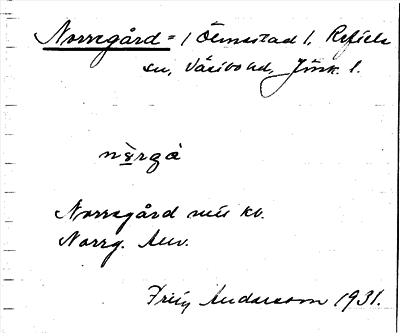 Norregård = i Ölmestad 1, Reftele
sn, Västbo hd, Jönk. l.
nèrgå
Norregård
Norrg.
Frity Andersson 1931.